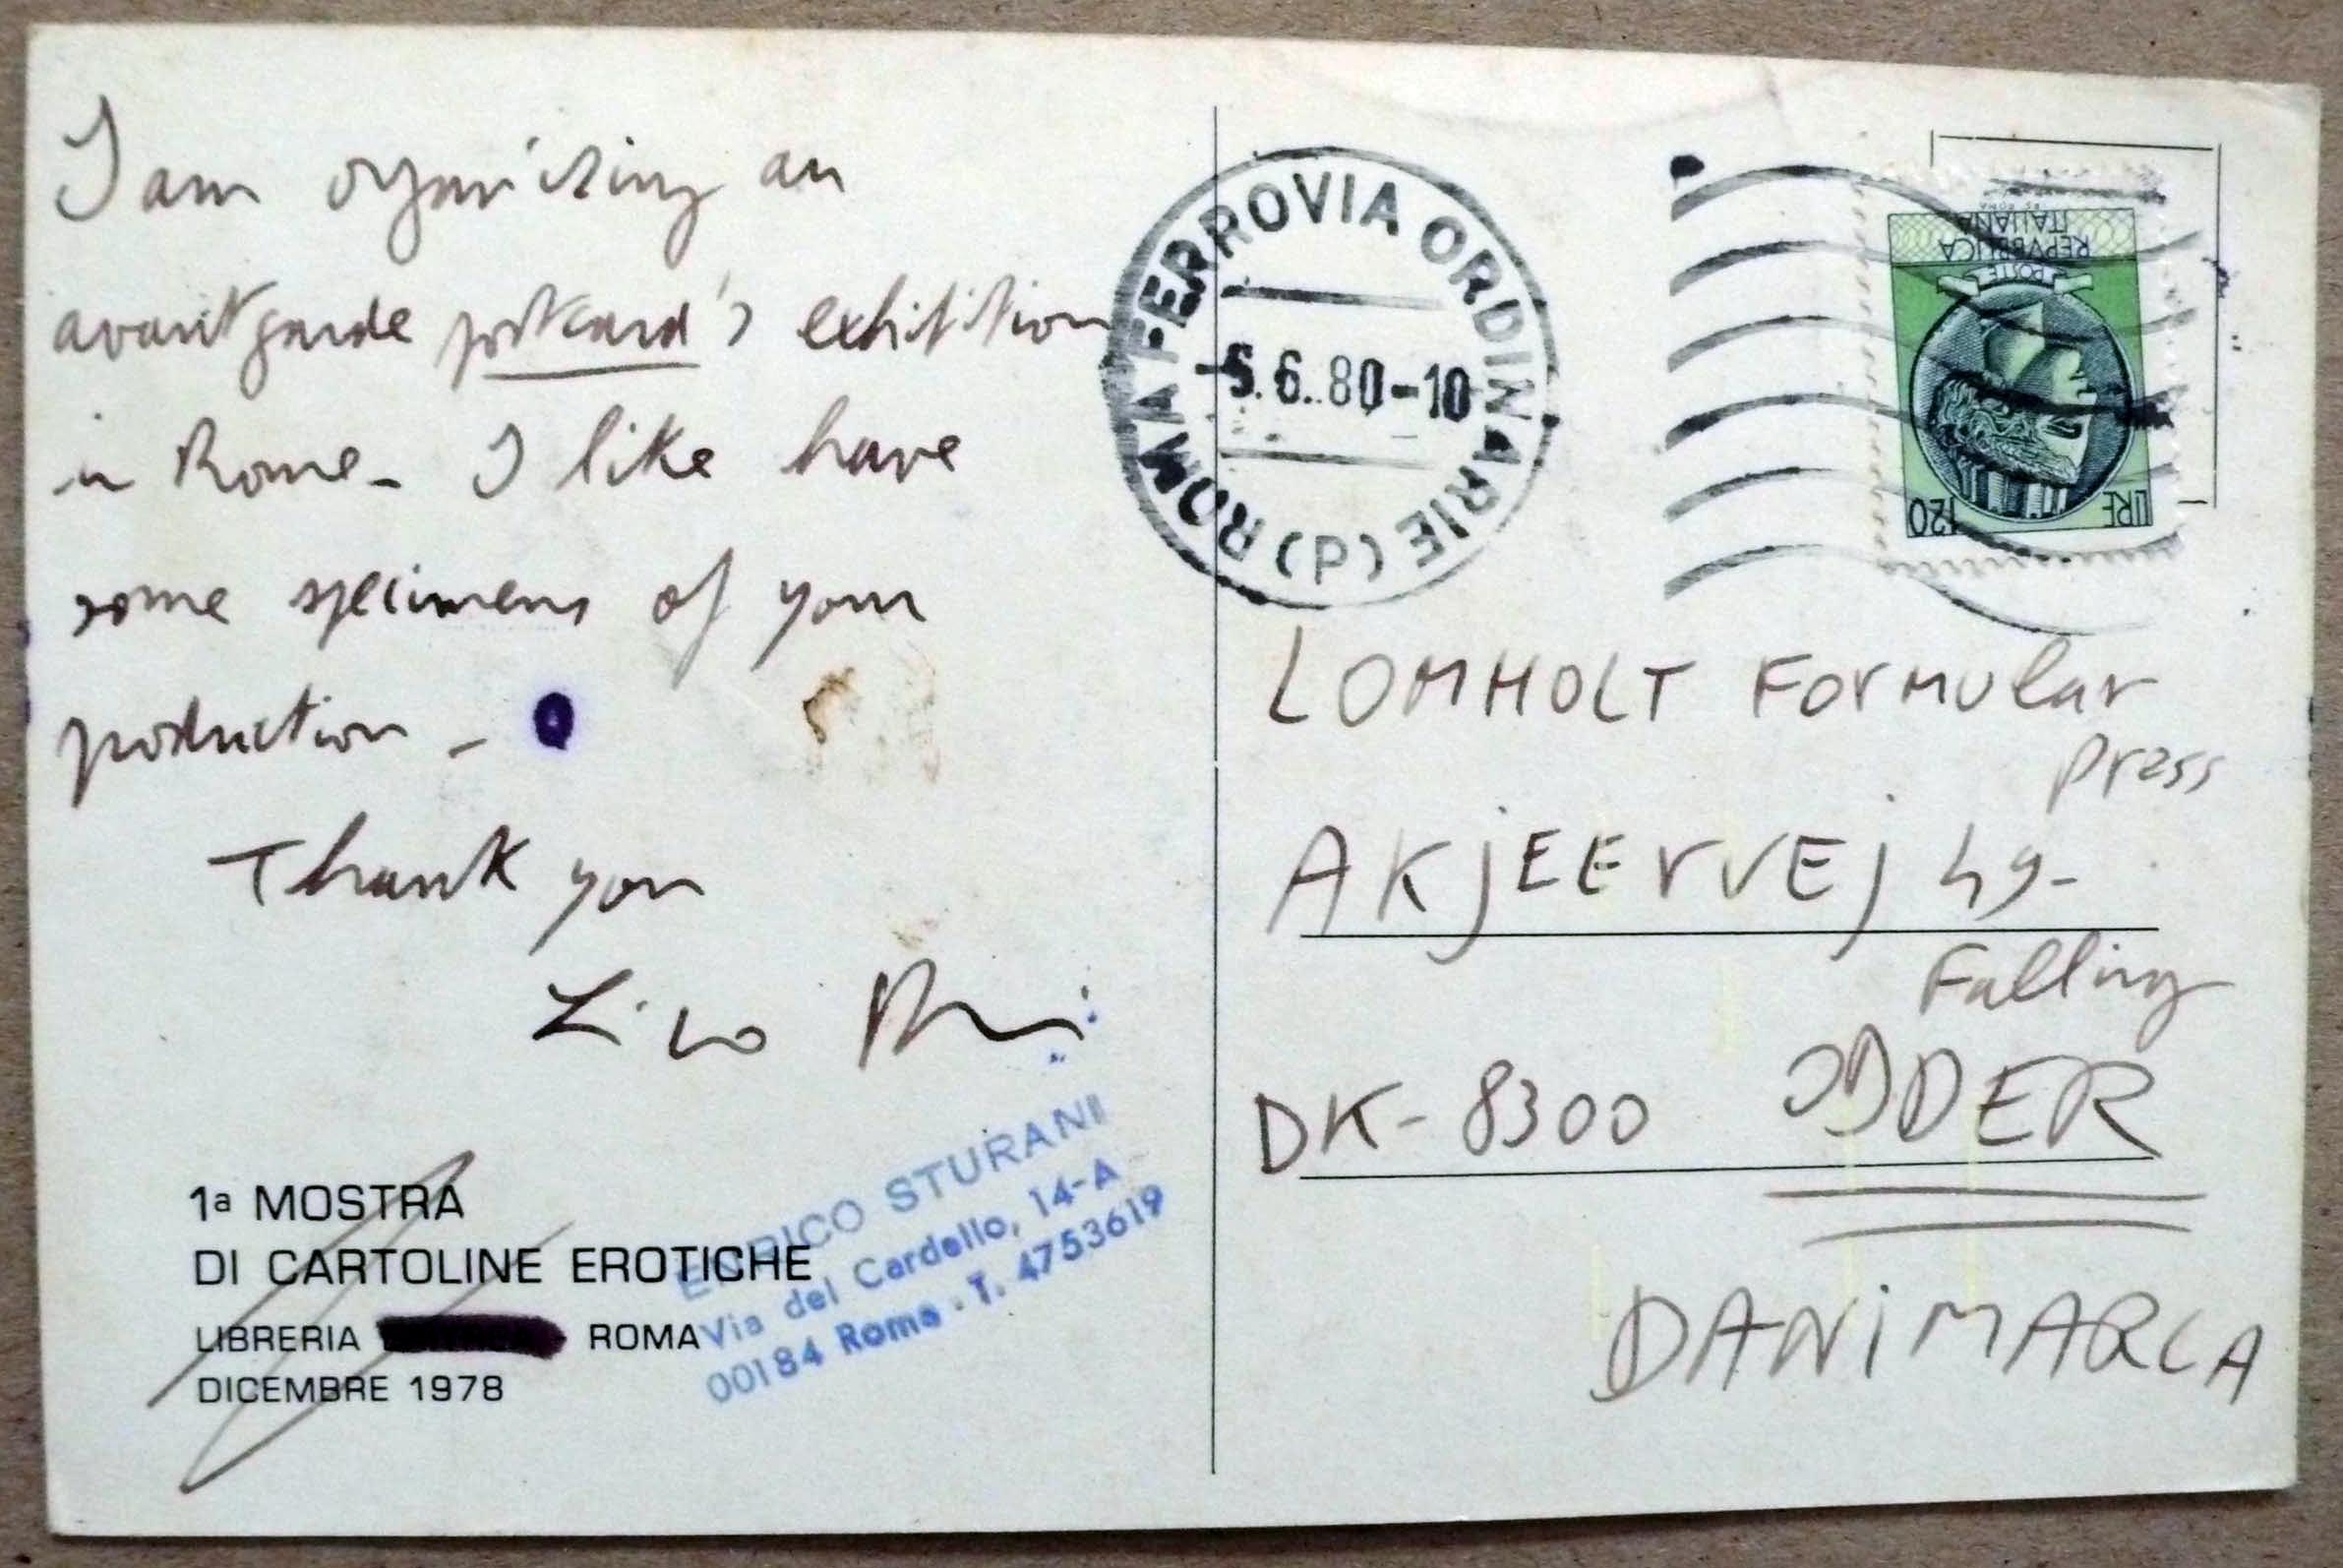 I am organising an
avantgarde postcard's exhibition
in Rome - I like have
some specimens of your
production -
Thank you
1a MOSTRA
DI CARTOLINE EROTICHE
LIBRERIA ROMA
DICEMBRE 1978
ENRICO STURANI
Via del Cardello, 14-A
00184 Roma - T. 4753619
ROMA FERROVIA ORDINARIE (P)
-5.6.80-10
POSTE
REPVBBLICA
ITALIANA
LIRE 120
LOMHOLT Formular
press
AKjEErVEj 49-
Falling
DK-8300 ODDER
DANiMARCA